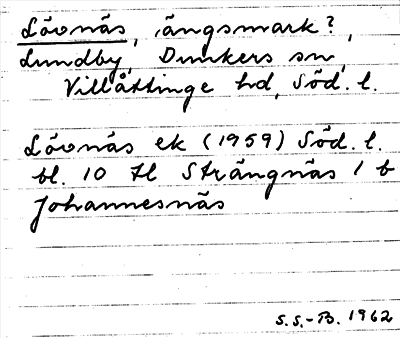 Lövnäs, ängsmark?,
Lundby, Dunkers sn,
Villåttinge hd, Söd. l.
Lövnäs ek (1959) Söd. l.
bl. 10 tl Strängnäs 1 b
Johannesnäs
S.S.-B. 1962